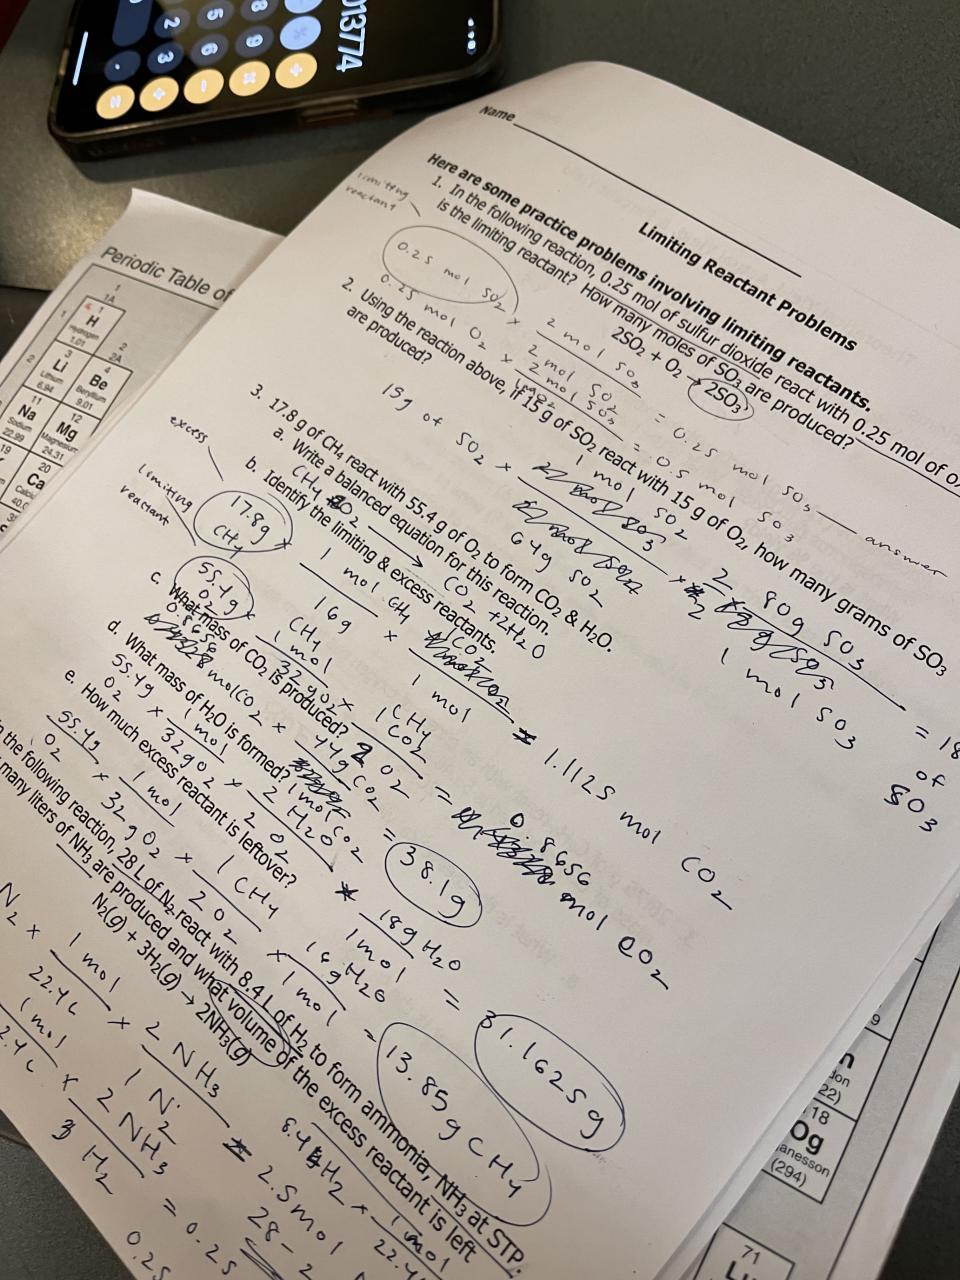 013774
Name
Limiting Reactant Problems
Here are some practice problems involving limiting reactants.
1. In the following reaction, 0.25 mol of sulfur dioxide react with 0.25 mol of
is the limiting reactant? How many moles of SO₃ are produced?
2SO₂ + O₂ → 2SO₃
limiting
reactant
0.25 mol SO₂ × 2 mol SO₃ / 2 mol SO₂ = 0.25 mol SO₃ answer
0.25 mol O₂ × 2 mol SO₃ / 1 mol O₂ = 0.5 mol SO₃
2. Using the reaction above, if 15 g of SO₂ react with 15 g of O₂, how many grams of SO₃
are produced?
15g of SO₂ × 1 mol SO₂ / 64g SO₂ × 2 / 2 × 80g SO₃ / 1 mol SO₃ = 18
of
SO₃
3. 17.8 g of CH₄ react with 55.4 g of O₂ to form CO₂ & H₂O.
a. Write a balanced equation for this reaction.
CH₄ 2O₂ → CO₂ + 2H₂O
b. Identify the limiting & excess reactants.
excess
17.8g CH₄ × 1 mol CH₄ / 16g CH₄ × 1 CO₂ / 1 mol CH₄ = 1.1125 mol CO₂
limiting
reactant
55.4g O₂ × 1 mol / 32g O₂ × 1 CO₂ / 2 O₂ = 0.8656 mol CO₂
c. What mass of CO₂ is produced?
0.8656 mol CO₂ × 44g CO₂ / 1 mol CO₂ = 38.1g
d. What mass of H₂O is formed?
55.4g O₂ × 1 mol / 32g O₂ × 2 H₂O / 2 O₂ × 18g H₂O / 1 mol = 31.1625g
e. How much excess reactant is leftover?
55.4g O₂ × 1 mol / 32g O₂ × 1 CH₄ / 2 O₂ × 16g H₂O / 1 mol = 13.85g CH₄
the following reaction, 28 L of N₂ react with 8.4 L of H₂ to form ammonia, NH₃ at STP.
many liters of NH₃ are produced and what volume of the excess reactant is left
N₂(g) + 3H₂(g) → 2NH₃(g)
N₂ × 1 mol / 22.4L × 2 NH₃ / 1 N₂ = 2.5 mol
1 mol / 2.4L × 2 NH₃ / 3 H₂ = 0.25
8.4L H₂ × 1 mol / 22.4
28 - 2
0.25
Periodic Table of
1
1A
1
H
Hydrogen
1.01
2
2A
3
Li
Lithium
6.94
4
Be
Beryllium
9.01
11
Na
Sodium
22.99
12
Mg
Magnesium
24.31
19
20
Ca
18
Og
(294)
71